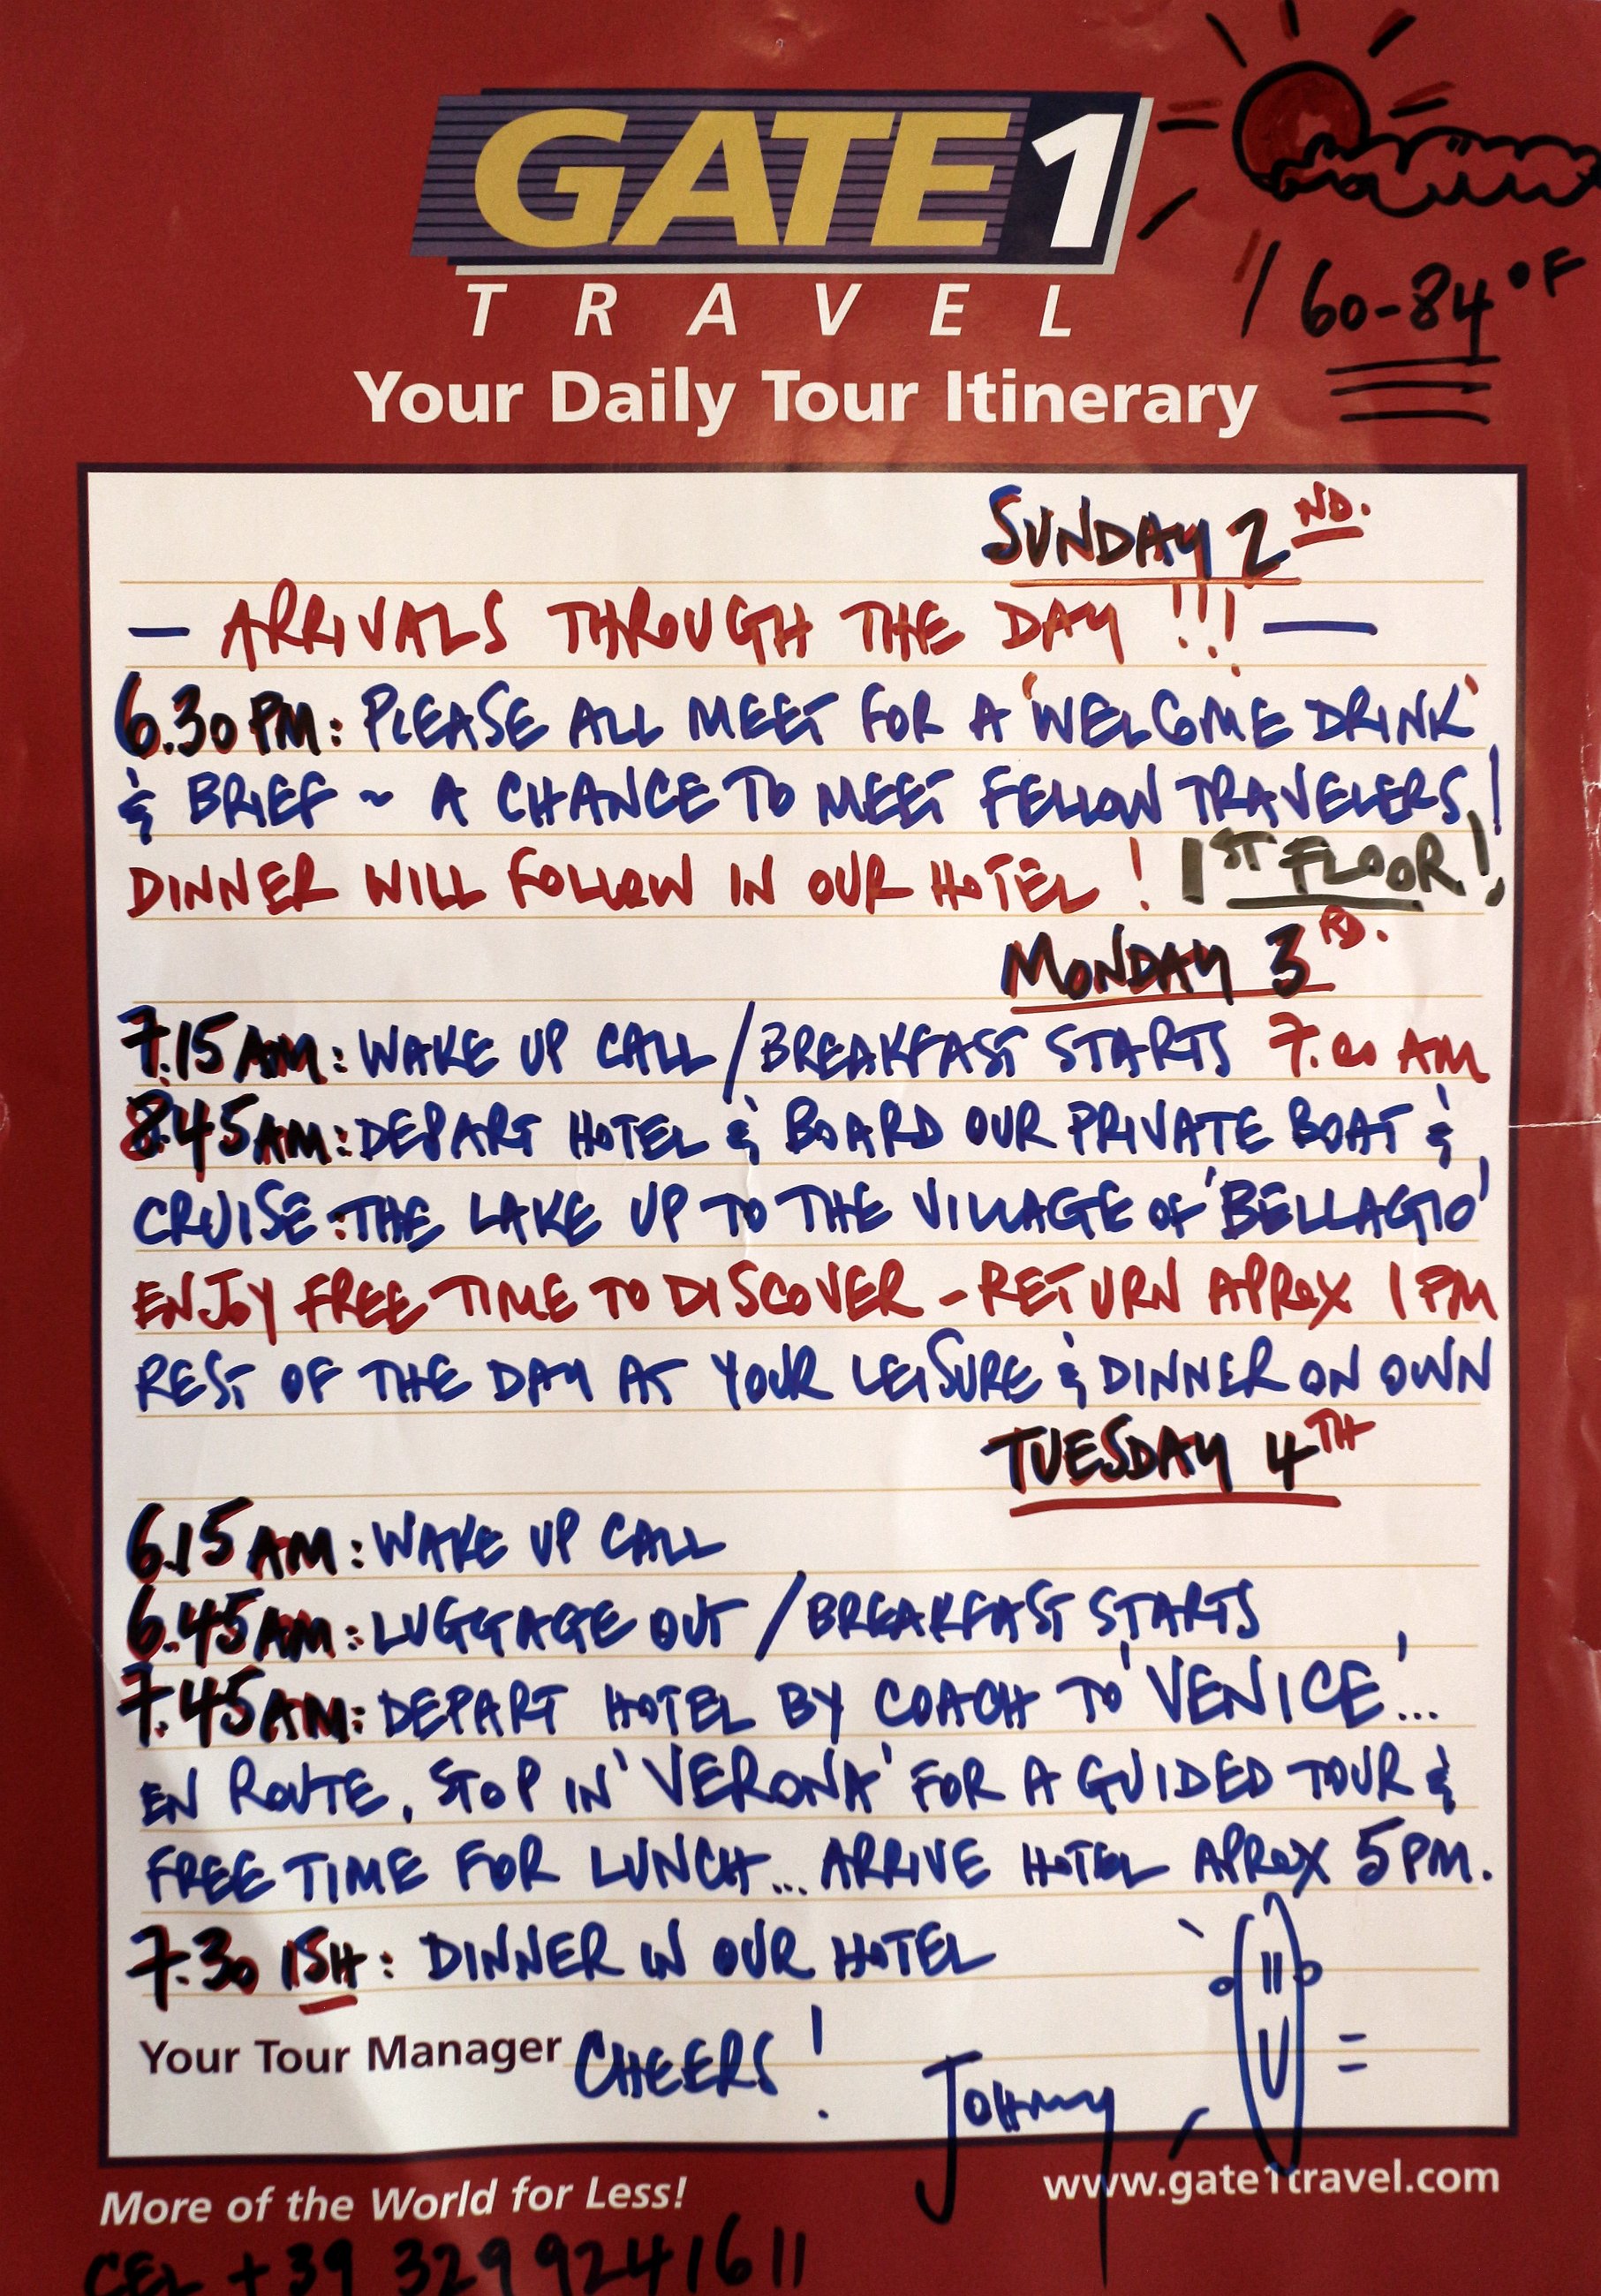 GATE 1
TRAVEL
60-84°F
Your Daily Tour Itinerary
SUNDAY 2ND.
— ARRIVALS THROUGH THE DAY !!! —
6.30 PM: PLEASE ALL MEET FOR A 'WELCOME DRINK'
& BRIEF ~ A CHANCE TO MEET FELLOW TRAVELERS!
DINNER WILL FOLLOW IN OUR HOTEL ! 1ST FLOOR!
MONDAY 3RD.
7.15 AM: WAKE UP CALL / BREAKFAST STARTS 7.00 AM
8.45 AM: DEPART HOTEL & BOARD OUR PRIVATE BOAT &
CRUISE THE LAKE UP TO THE VILLAGE OF 'BELLAGIO'
ENJOY FREE TIME TO DISCOVER - RETURN APROX 1 PM
REST OF THE DAY AT YOUR LEISURE & DINNER ON OWN
TUESDAY 4TH
6.15 AM: WAKE UP CALL
6.45 AM: LUGGAGE OUT / BREAKFAST STARTS
7.45 AM: DEPART HOTEL BY COACH TO 'VENICE'...
EN ROUTE, STOP IN 'VERONA' FOR A GUIDED TOUR &
FREE TIME FOR LUNCH... ARRIVE HOTEL APROX 5 PM.
7.30 ISH: DINNER IN OUR HOTEL
Your Tour Manager CHEERS! Johnny
More of the World for Less! www.gate1travel.com
CEL +39 329 9241611